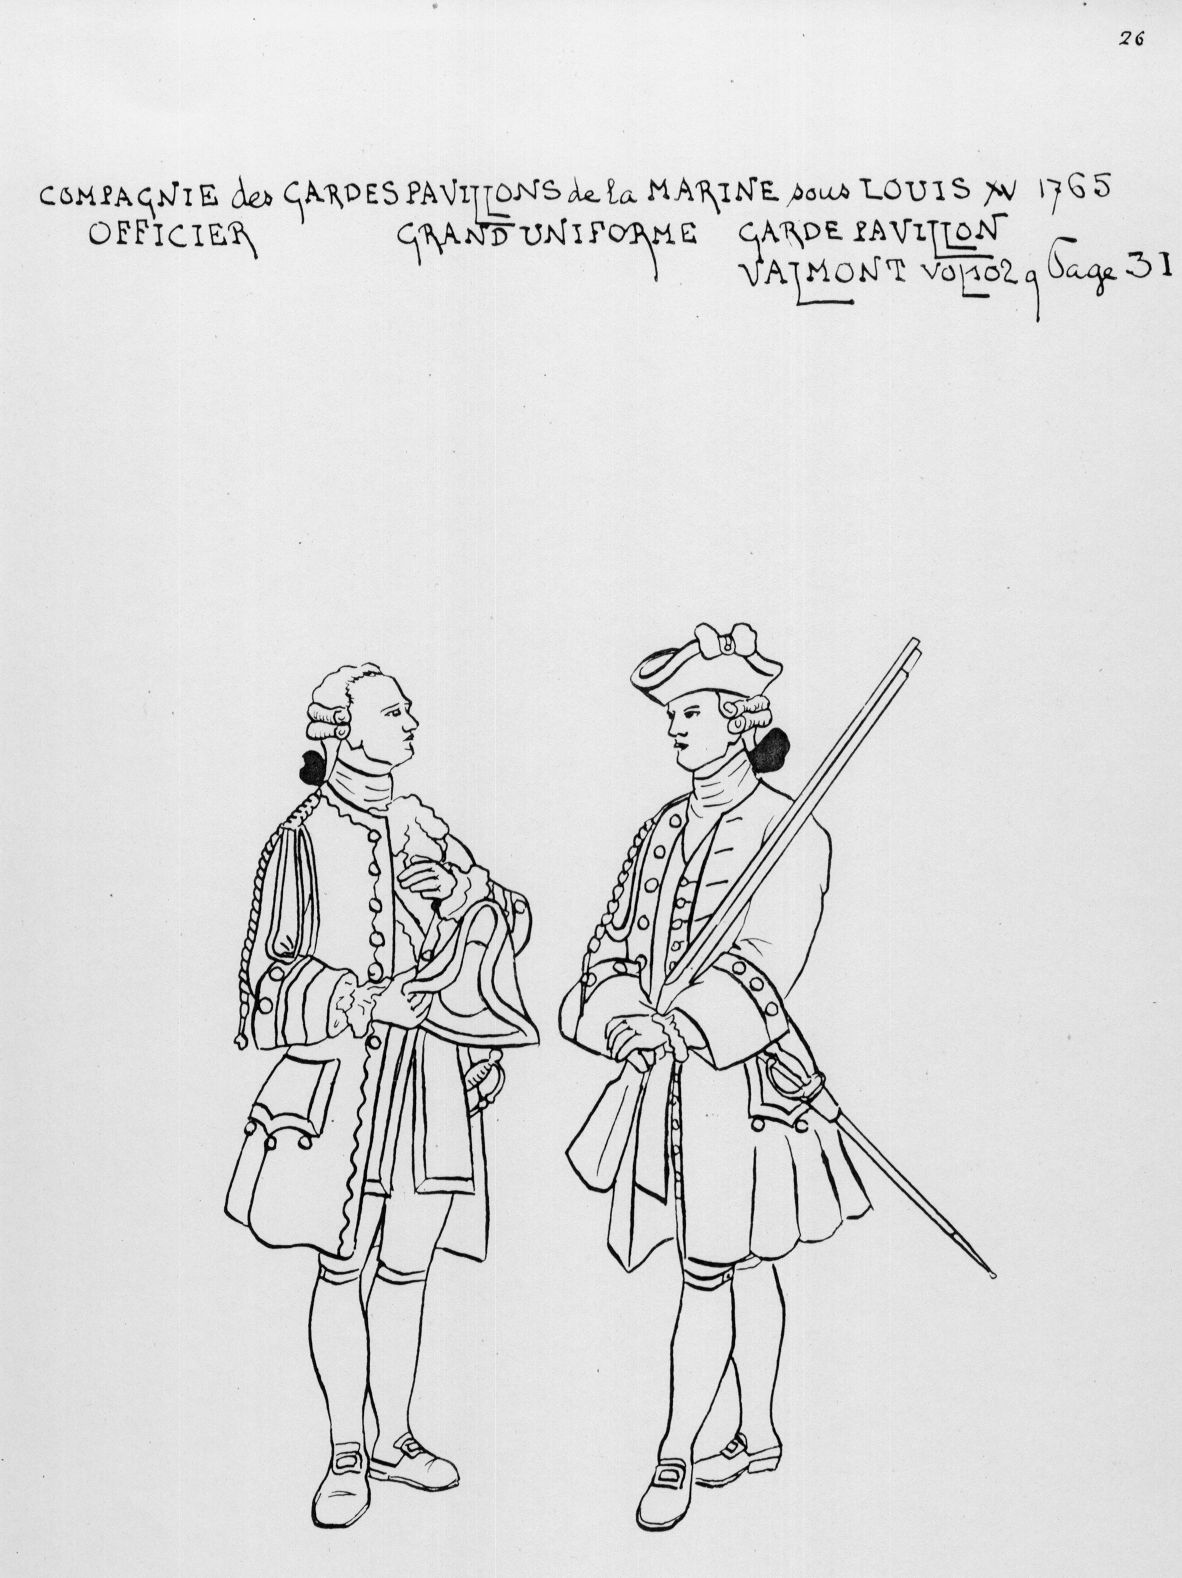 26
COMPAGNIE des GARDES PAVILLONS de la MARINE sous LOUIS XV 1765
OFFICIER GRAND UNIFORME GARDE PAVILLON
VALMONT VOL 102 g Page 31